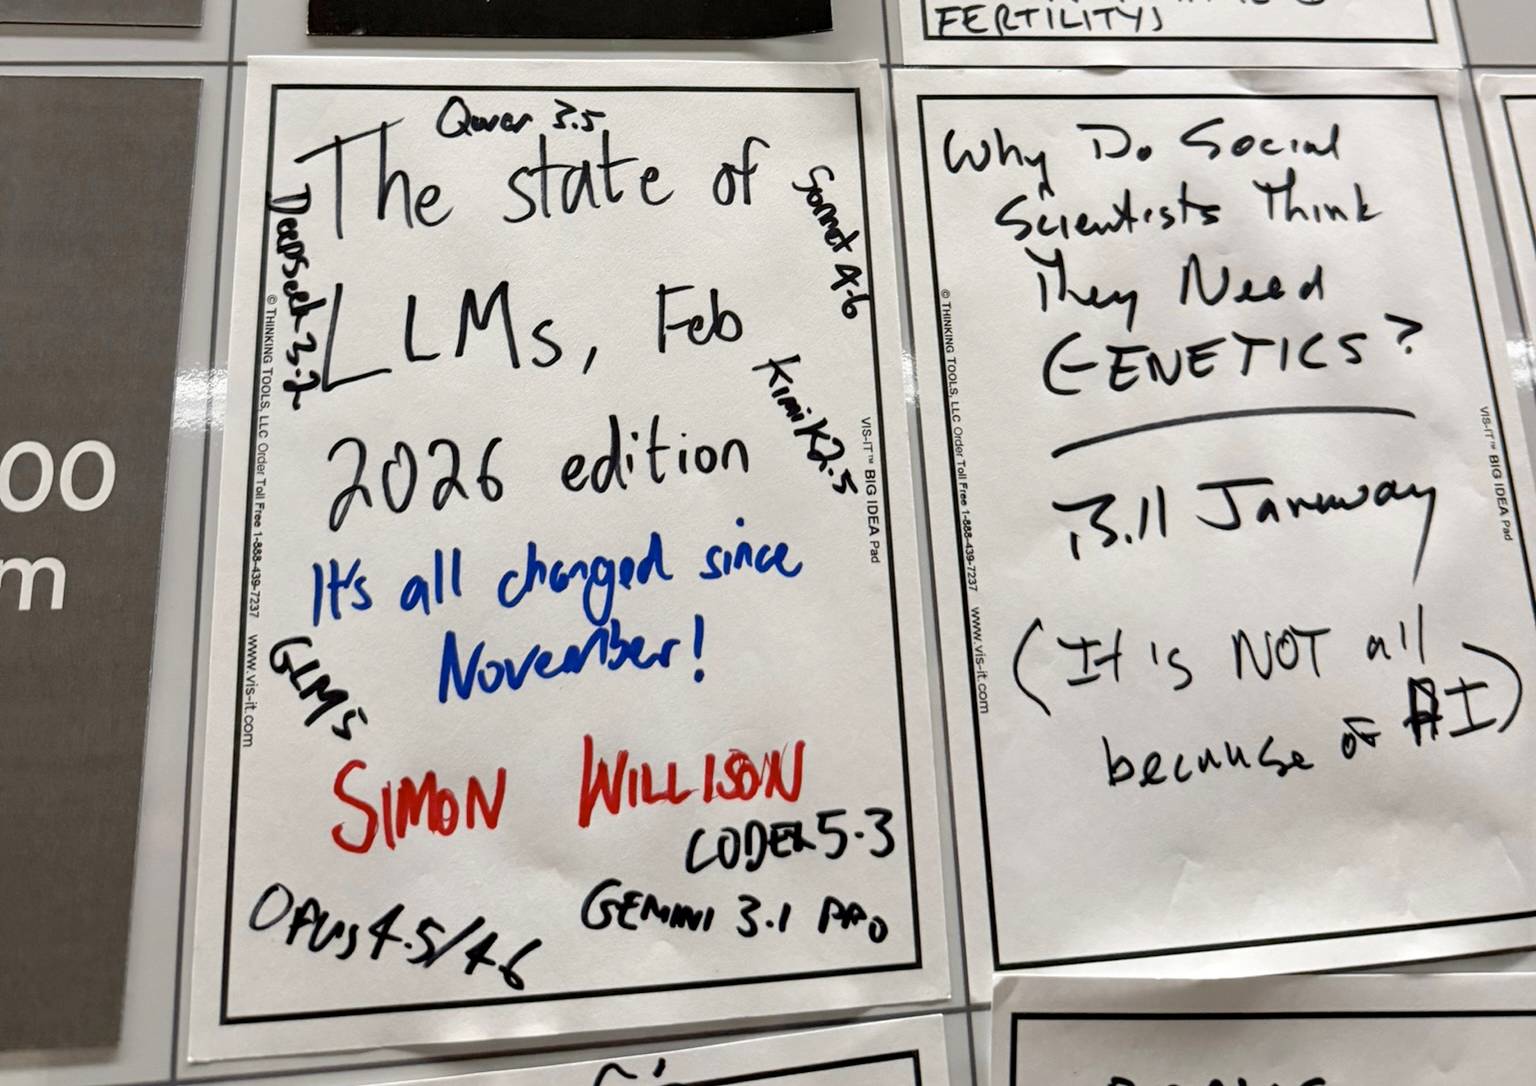 FERTILITY)
00
m
Qwen 3.5
The state of
LLMs, Feb
2026 edition
It's all changed since
November!
SIMON WILLISON
CODEX 5.3
GEMINI 3.1 PRO
OPUS 4.5/4.6
DeepSeek 3.2
GLM 5
Sonnet 4.6
Kimi K2.5
© THINKING TOOLS, LLC Order Toll Free 1-888-439-7237 www.vis-it.com
VIS-IT™ BIG IDEA Pad
Why Do Social
Scientists Think
They Need
GENETICS?
J. Januway
(It's NOT all
because of AI)
© THINKING TOOLS, LLC Order Toll Free 1-888-439-7237 www.vis-it.com
VIS-IT™ BIG IDEA Pad